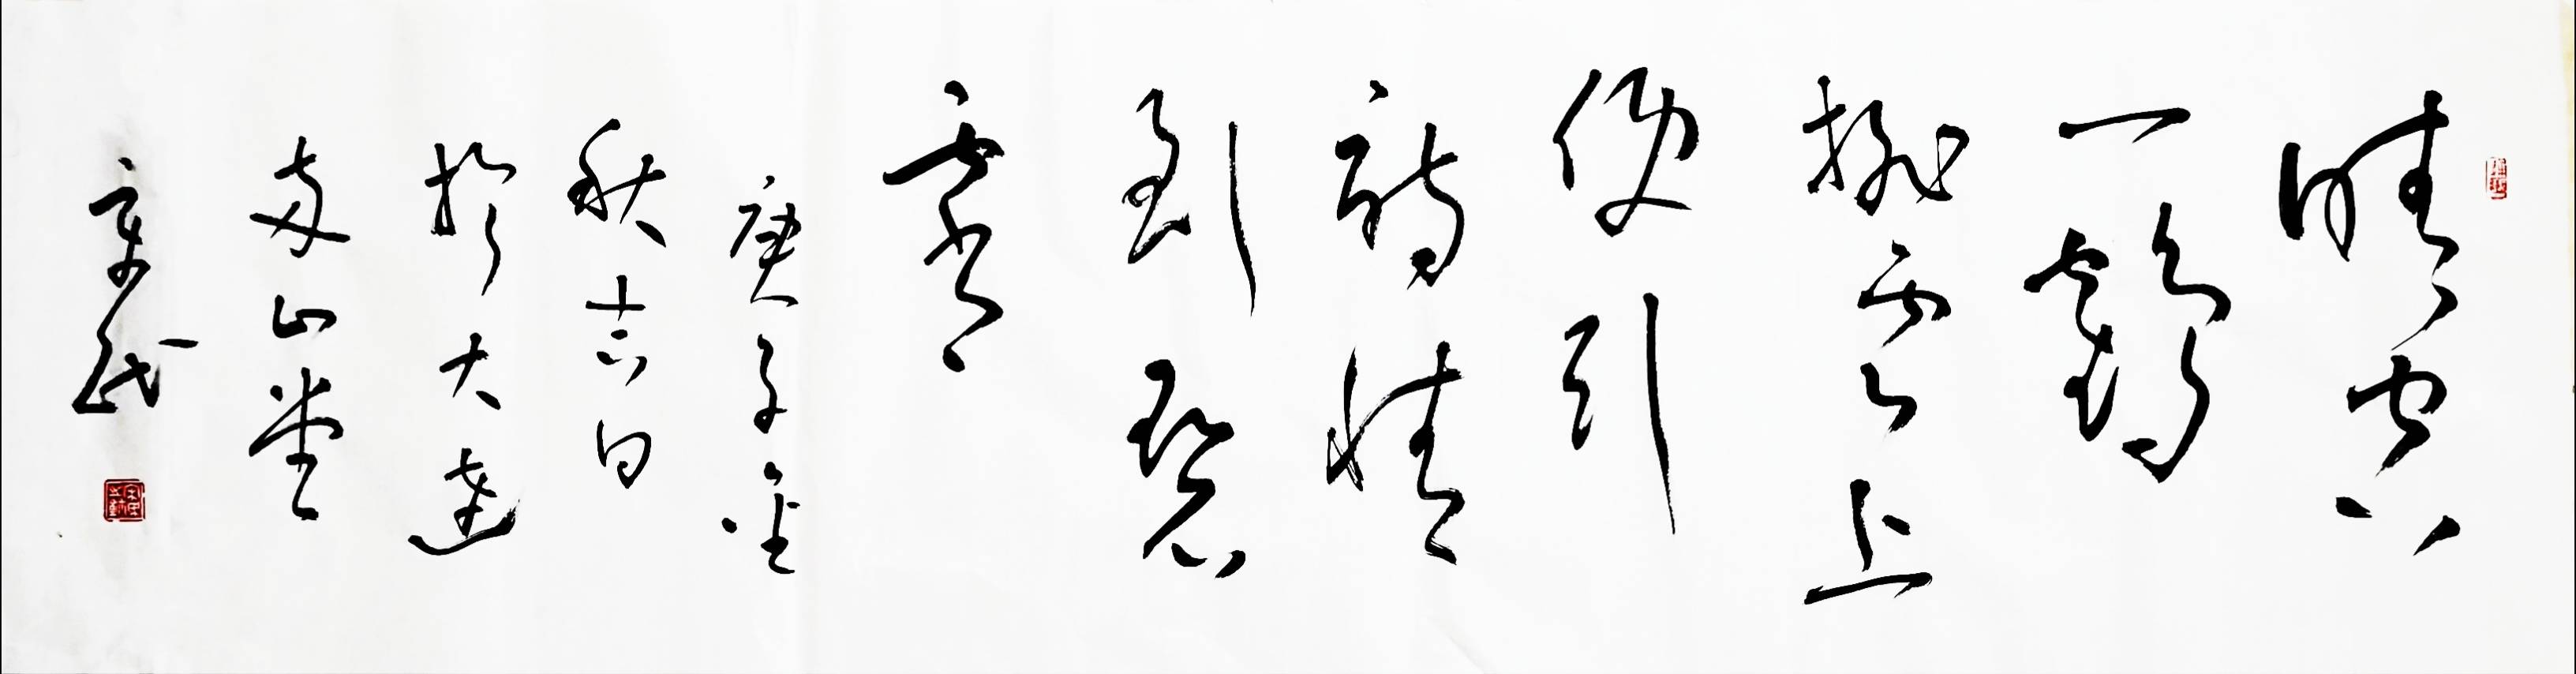 晴空
一鹤
排云上
便引
诗情
到碧
霄
庚子金
秋吉日
於大连
南山堂